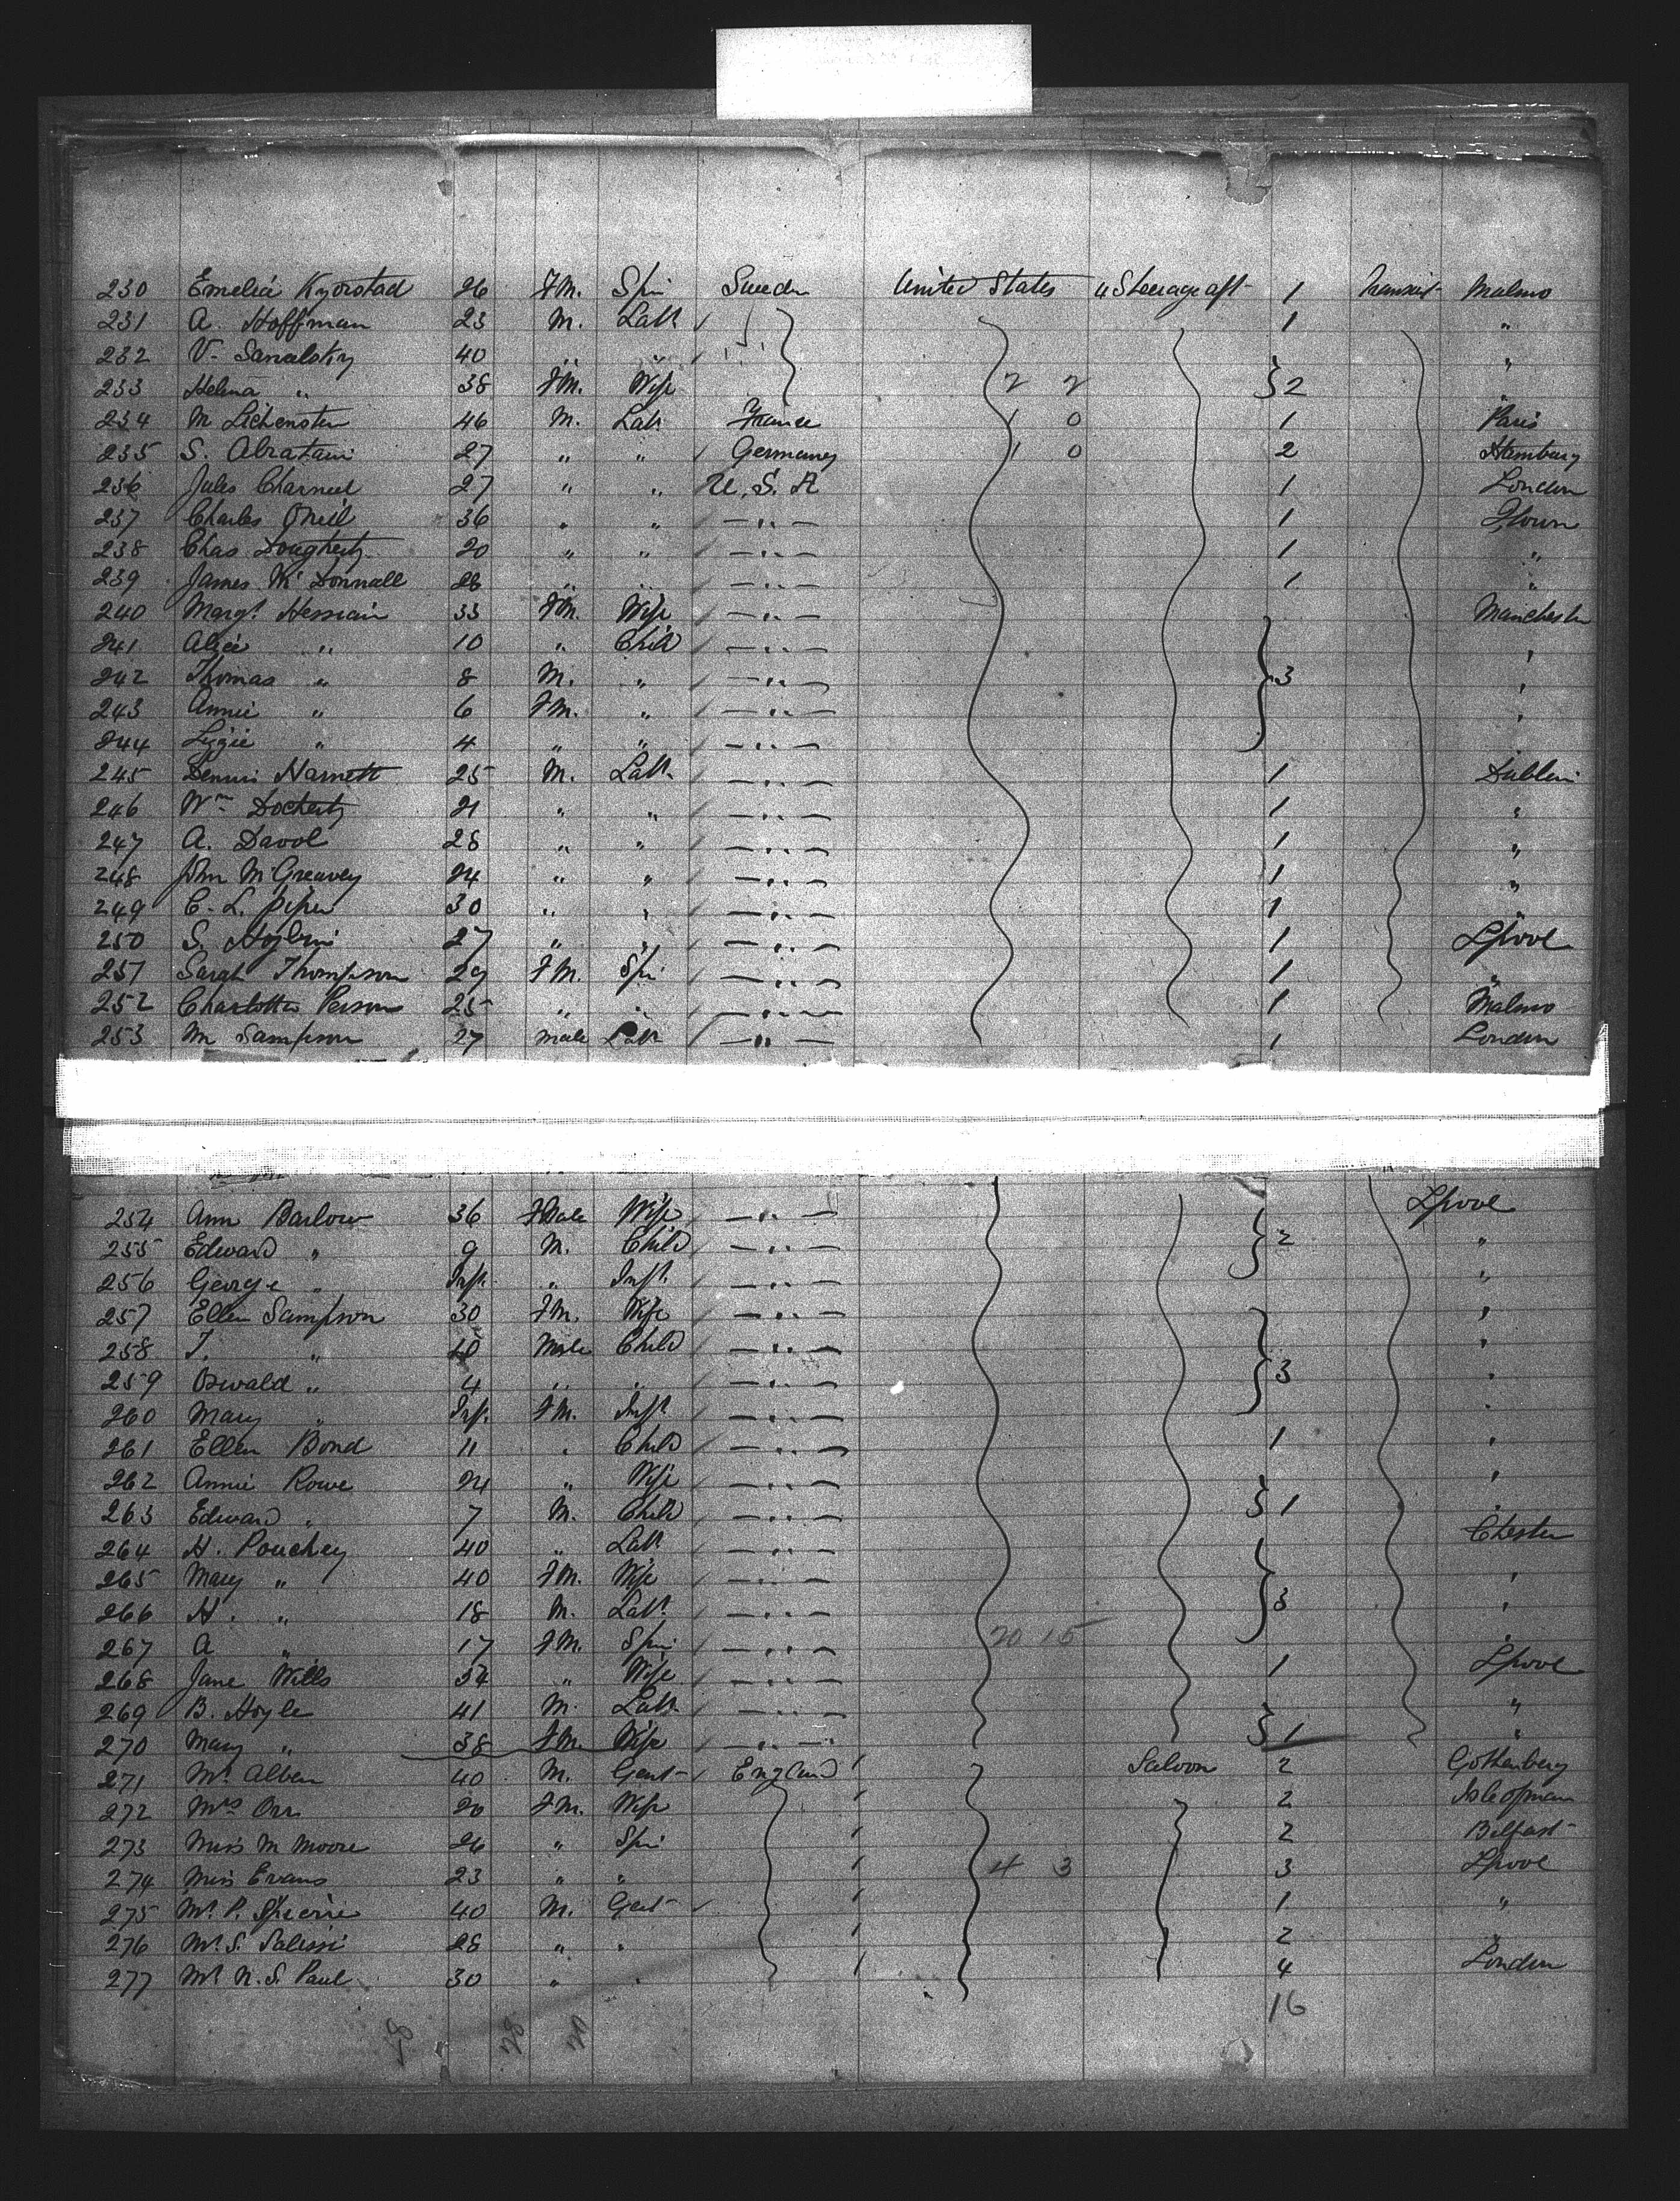 230 Emelia Kyorstad 26 FM. Spi Sweden United States 4 Steerage aft 1 Transit Malmo
231 A. Hoffman 23 M. Labr 1 "
232 V. Sandelsky 40 " " "
233 Helena " 38 FM. Wife 2 2 } 2 "
234 M Lichenstein 46 M. Labr France 1 0 1 Paris
235 S. Abratani 27 " " Germany 1 0 2 Hamburg
236 Jules Charneil 27 " " U. S. A 1 London
237 Charles O'Neil 36 " " — " — 1 Qtown
238 Chas Dougherty 20 " " — " — 1 "
239 James McDonnall 28 " " — " — 1 "
240 Margt. Hessiain 33 FM. Wife — " — Manchester
241 Alice " 10 " Child — " — "
242 Thomas " 8 M. " — " — } 3 "
243 Annie " 6 FM. " — " — "
244 Lizzie " 4 " " — " —
245 Dennis Harnett 25 M. Labr — " — 1 Dublin
246 Wm Docherty 21 " " — " — 1 "
247 A. Davol 28 " " — " — 1 "
248 John McGreavey 24 " " — " — 1 "
249 C. L. Piper 30 " " — " — 1 "
250 S. 27 " " — " — 1 Lpool
251 Sarah Thompson 29 FM. Spi — " — 1 "
252 Charlotte Person 25 " " — " — 1 Malmo
253 M Sampson 27 Male Labr — " — 1 London
254 Ann Barlow 36 FMale Wife — " — Lpool
255 Edward " 9 M. Child — " — } 2 "
256 George " Inft. " Inft. — " — "
257 Ellen Sampson 30 FM. Wife — " — "
258 T. " 10 Male Child — " — "
259 Oswald " 4 " " — " — } 3 "
260 Mary " Inft. FM. Inft. — " — "
261 Ellen Bond 11 " Child — " — 1 "
262 Annie Rowe 24 " Wife — " — "
263 Edward " 7 M. Child — " — } 1 "
264 H. Pouchey 40 " Labr — " — Chester
265 Mary " 40 FM. Wife — " — "
266 H. " 18 M. Labr. — " — } 3 "
267 A " 17 FM. Spi — " — 20 15 "
268 Jane Wills 54 " Wife — " — 1 Lpool
269 B. Hoyle 41 M. Labr — " — "
270 Mary " 38 FM. Wife — " — } 1 "
271 Mr Alben 40 M. Gent England 1 Saloon 2 Gothenberg
272 Mrs Orr 20 FM. Wife 1 2 Isle of man
273 Miss M Moore 26 " Spi 1 2 Belfast
274 Miss Evans 23 " " 1 4 3 3 Lpool
275 Mr. P. 40 M. Gent 1 1 "
276 Mr. S. Salissi 28 " " 1 2 "
277 Mr N. S. Paul 30 " " 1 4 London
16